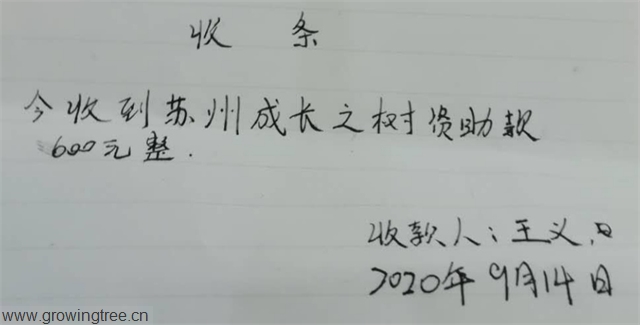 收 条
今收到苏州成长之树资助款
600元整.
收款人:王义
2020年9月14日
www.growingtree.cn